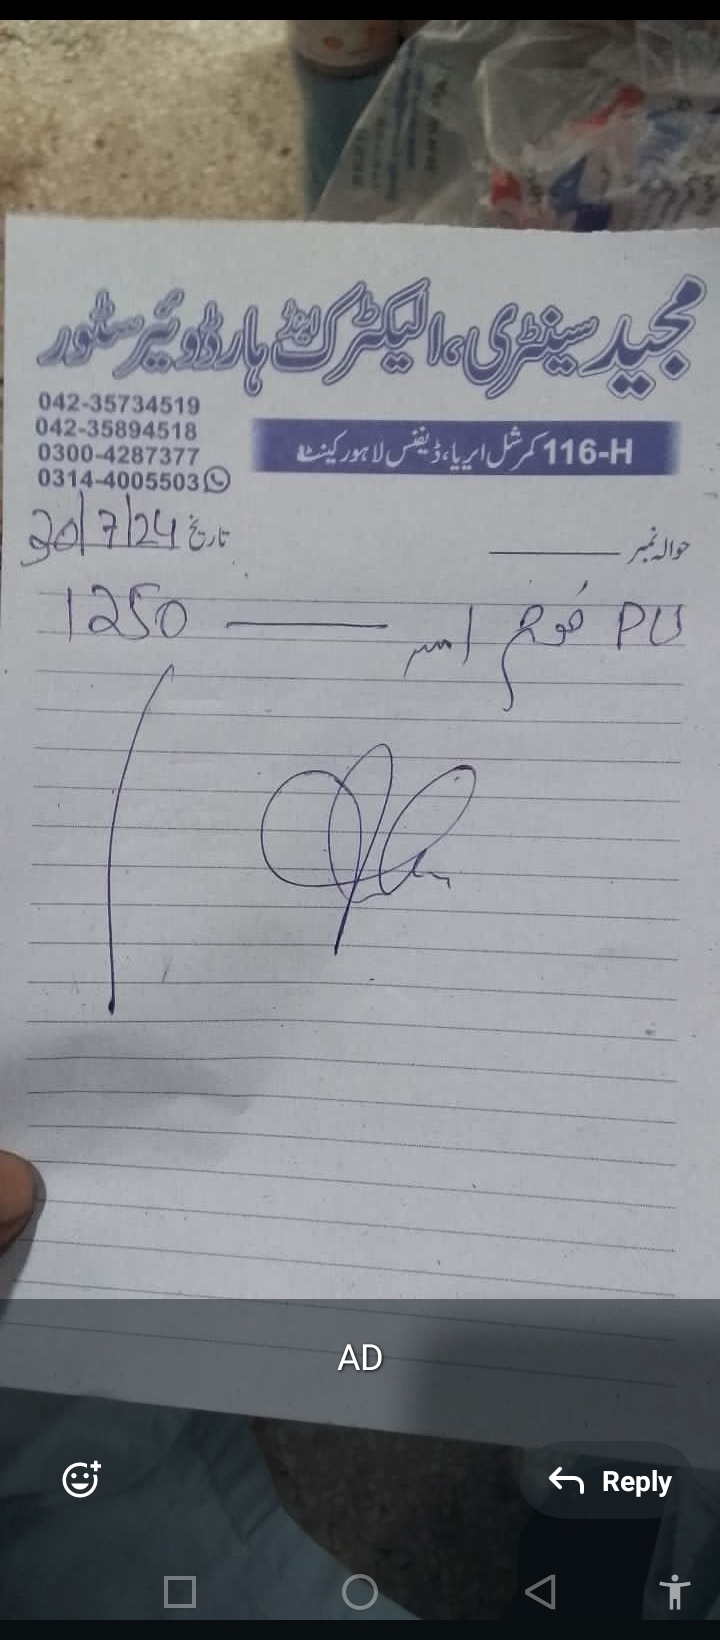 مجید سینٹری، الیکٹرک اینڈ ہارڈوئیر سٹور
042-35734519
042-35894518
0300-4287377
0314-4005503
116-H کمرشل ایریا، ڈیفنس لاہور کینٹ
حوالہ نمبر
تاریخ 20/7/24
PU فوم 1250
AD
Reply